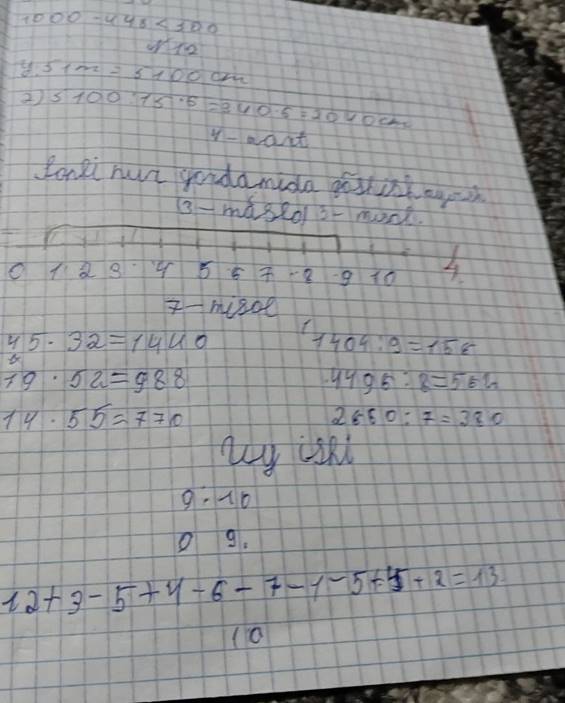 1000 - 448 < 300
№12
1) 51m = 5100 cm
2) 5100 : 15 · 6 = 340 · 6 = 2040 cm
4-mart
Sonli nur yordamida qo'shish, ayirish
(3-masla) 3-misol.
0 1 2 3 4 5 6 7 8 9 10
4.
7-misol
45 · 32 = 1440 1404 : 9 = 156
19 · 52 = 988 4496 : 8 = 562
14 · 55 = 770 2660 : 7 = 380
Uy ishi
9 · 10
0 9.
12+3-5+4-6-7-1-5+5+2=13.
10